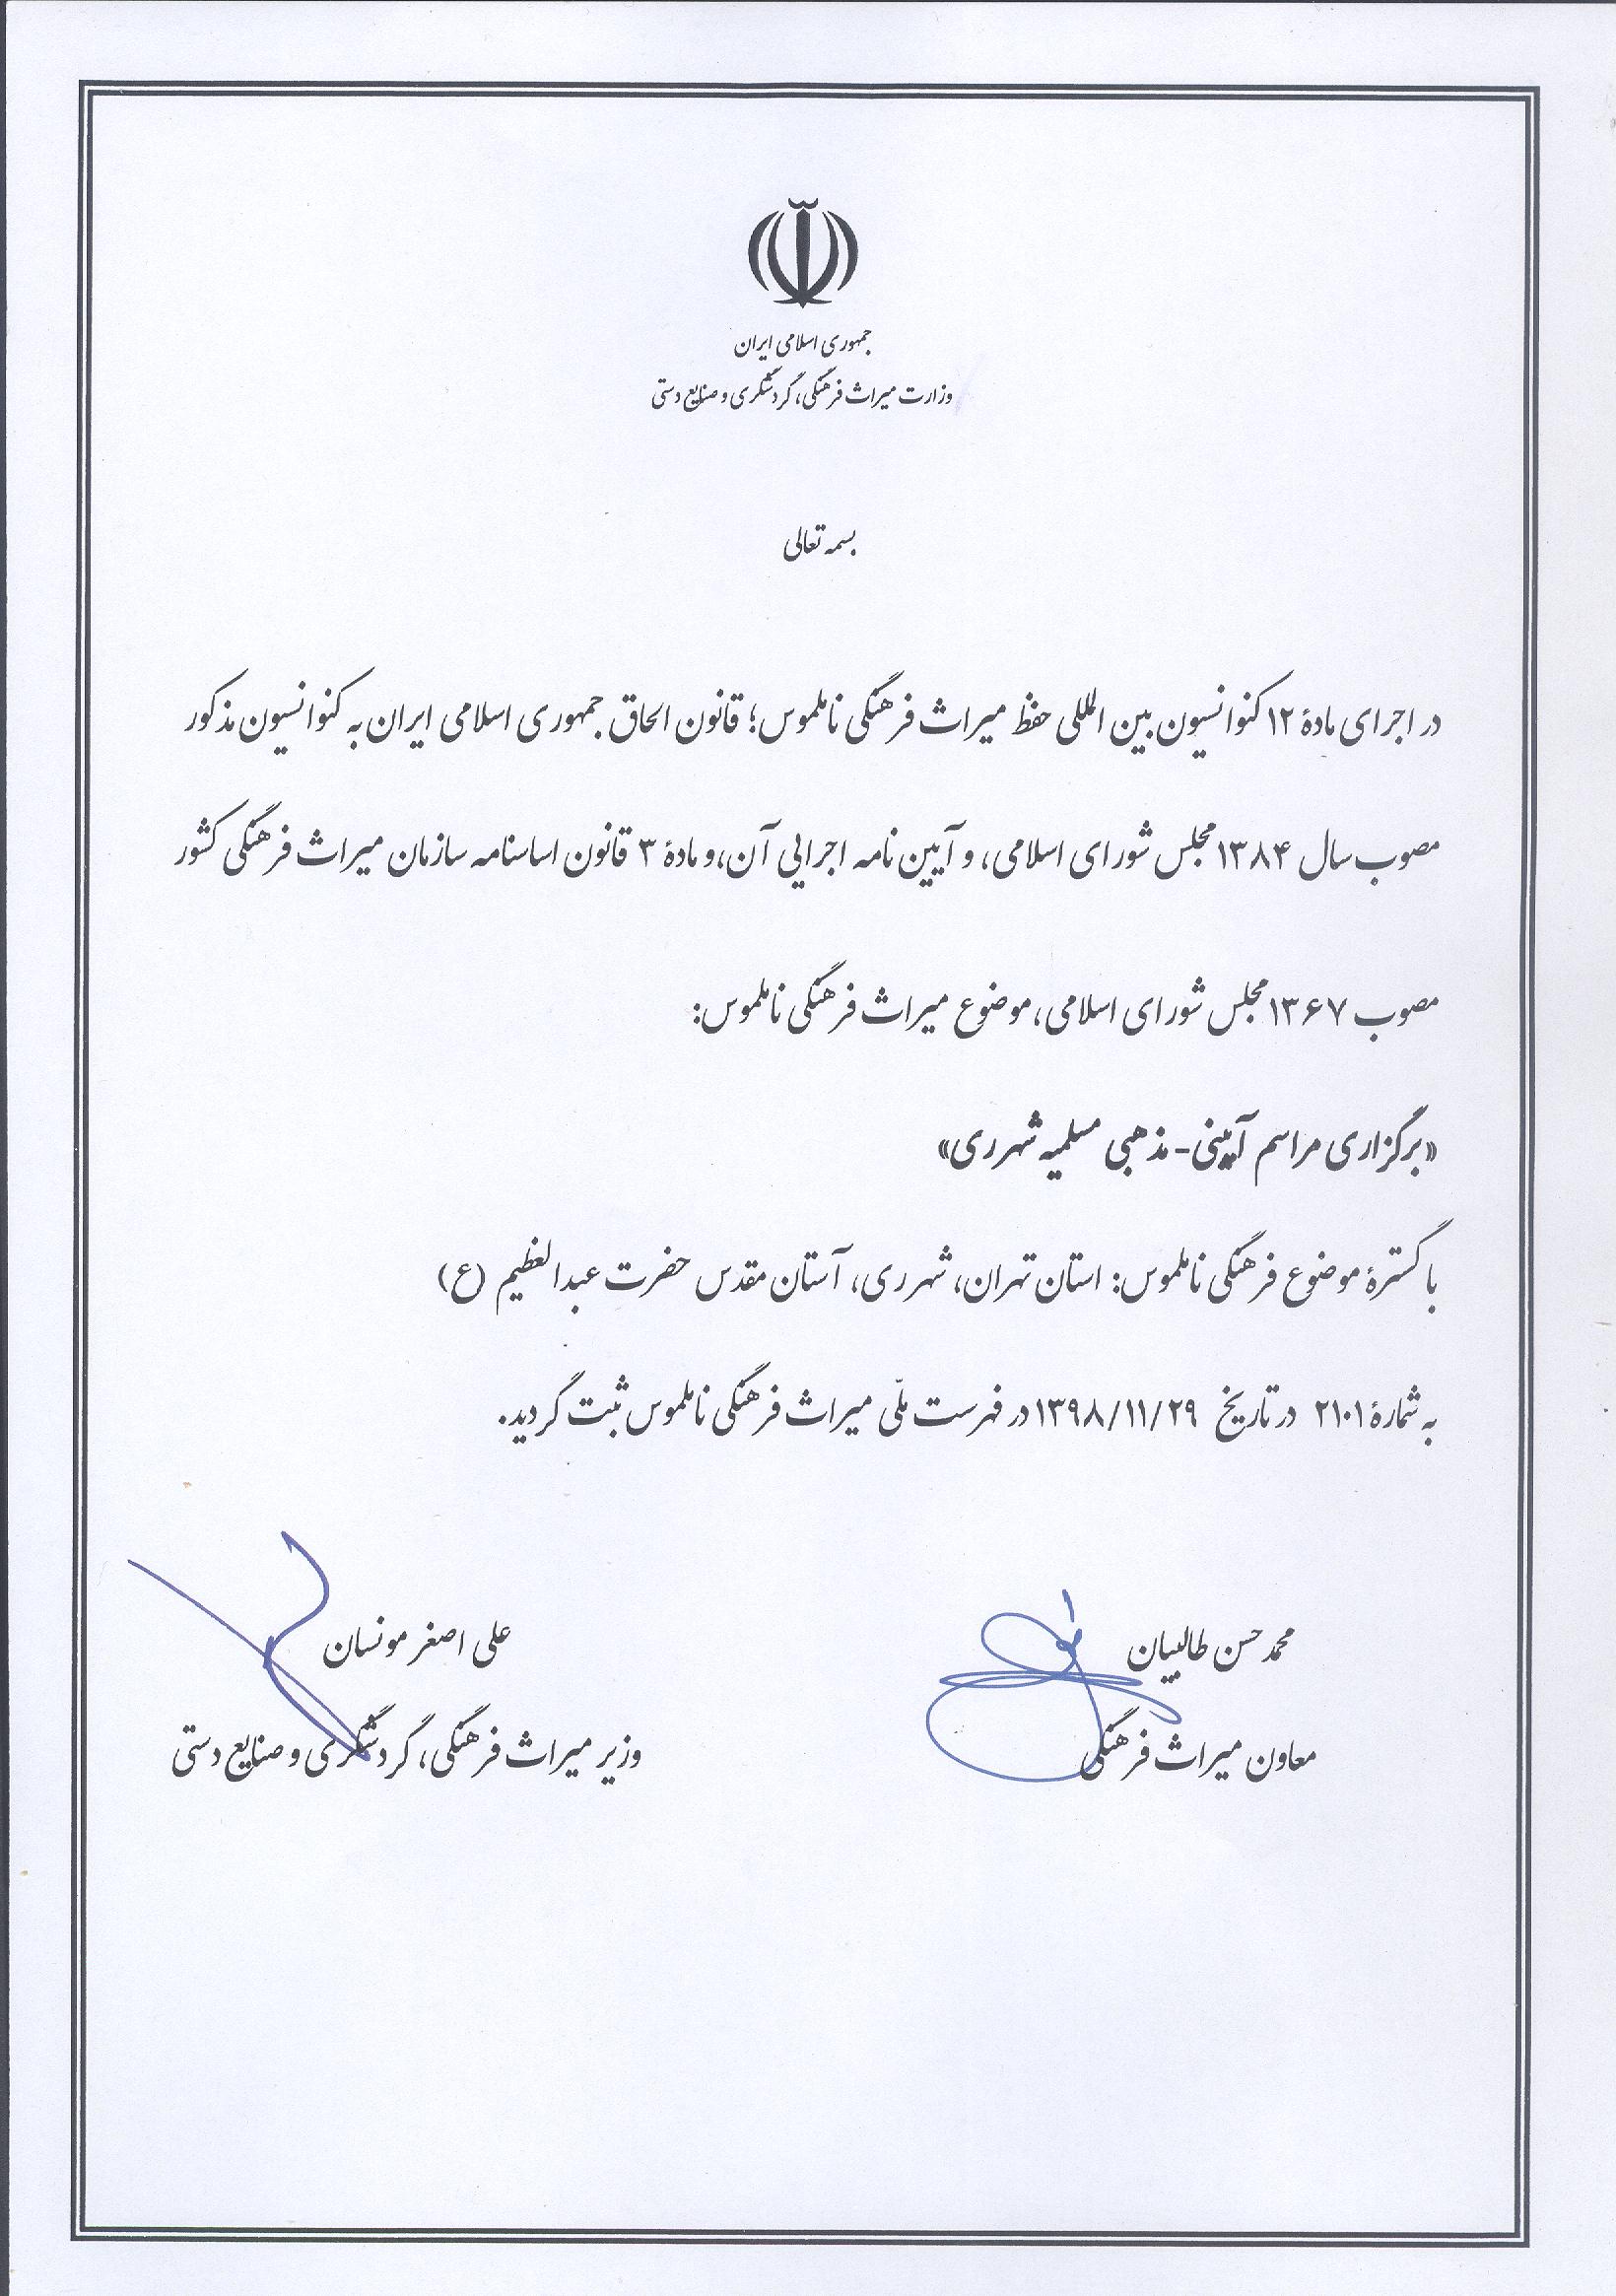 جمهوری اسلامی ایران
وزارت میراث فرهنگی، گردشگری و صنایع دستی
بسمه تعالی
در اجرای مادهٔ ۱۲ کنوانسیون بین المللی حفظ میراث فرهنگی ناملموس؛ قانون الحاق جمهوری اسلامی ایران به کنوانسیون مذکور
مصوب سال ۱۳۸۴ مجلس شورای اسلامی، و آیین نامه اجرایی آن، و مادهٔ ۳ قانون اساسنامه سازمان میراث فرهنگی کشور
مصوب ۱۳۶۷ مجلس شورای اسلامی، موضوع میراث فرهنگی ناملموس:
«برگزاری مراسم آیینی- مذهبی مسلمیه شهر ری»
با گسترهٔ موضوع فرهنگی ناملموس: استان تهران، شهر ری، آستان مقدس حضرت عبدالعظیم (ع)
به شمارهٔ ۲۱۰۱ در تاریخ ۱۳۹۸/۱۱/۲۹ در فهرست ملّی میراث فرهنگی ناملموس ثبت گردید.
محمد حسن طالبیان
معاون میراث فرهنگی
علی اصغر مونسان
وزیر میراث فرهنگی، گردشگری و صنایع دستی